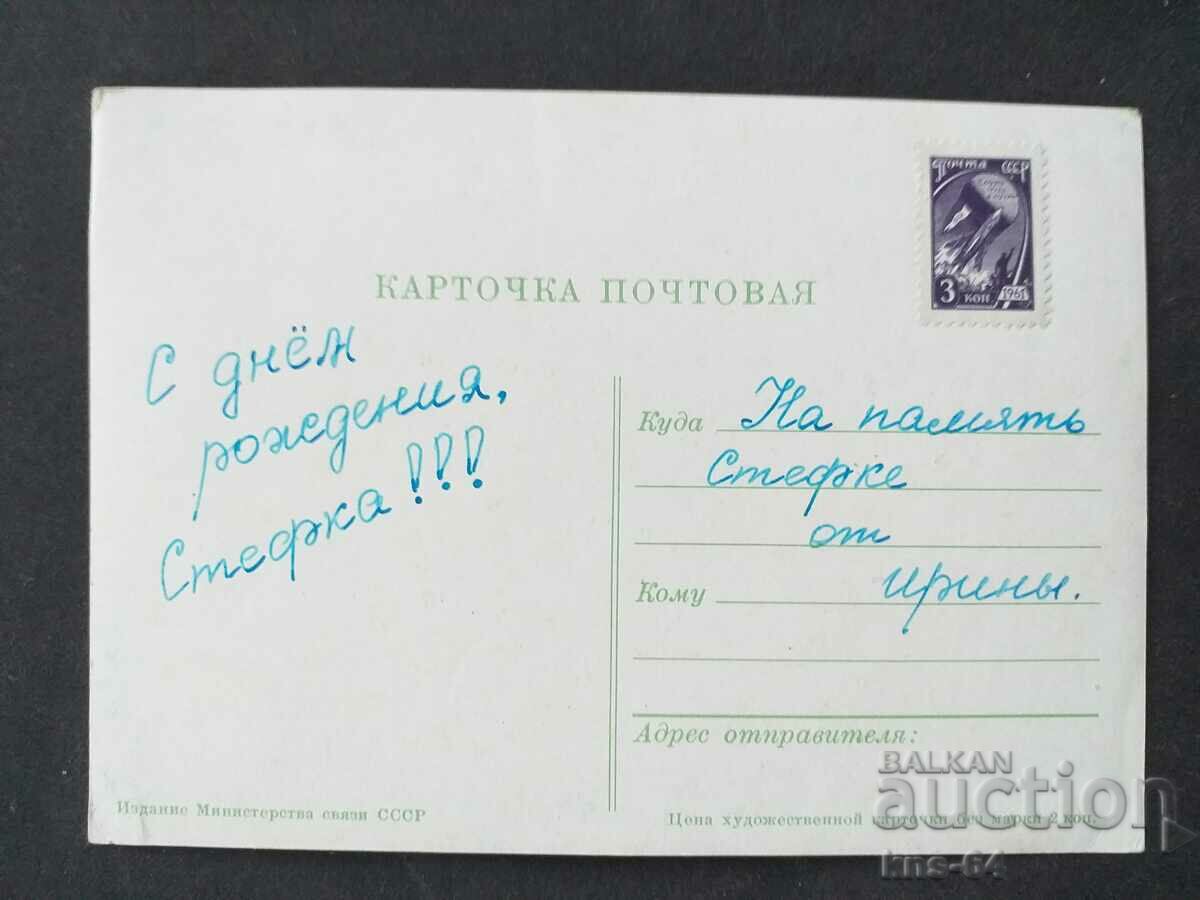 Почта СССР
3 коп
1961
КАРТОЧКА ПОЧТОВАЯ
С днём
рождения,
Стефка!!!
Куда На память
Стефке
от
Кому ирины.
Адрес отправителя:
Издание Министерства связи СССР
Цена художественной карточки без марки 2 коп.
BALKAN
auction
kns-64